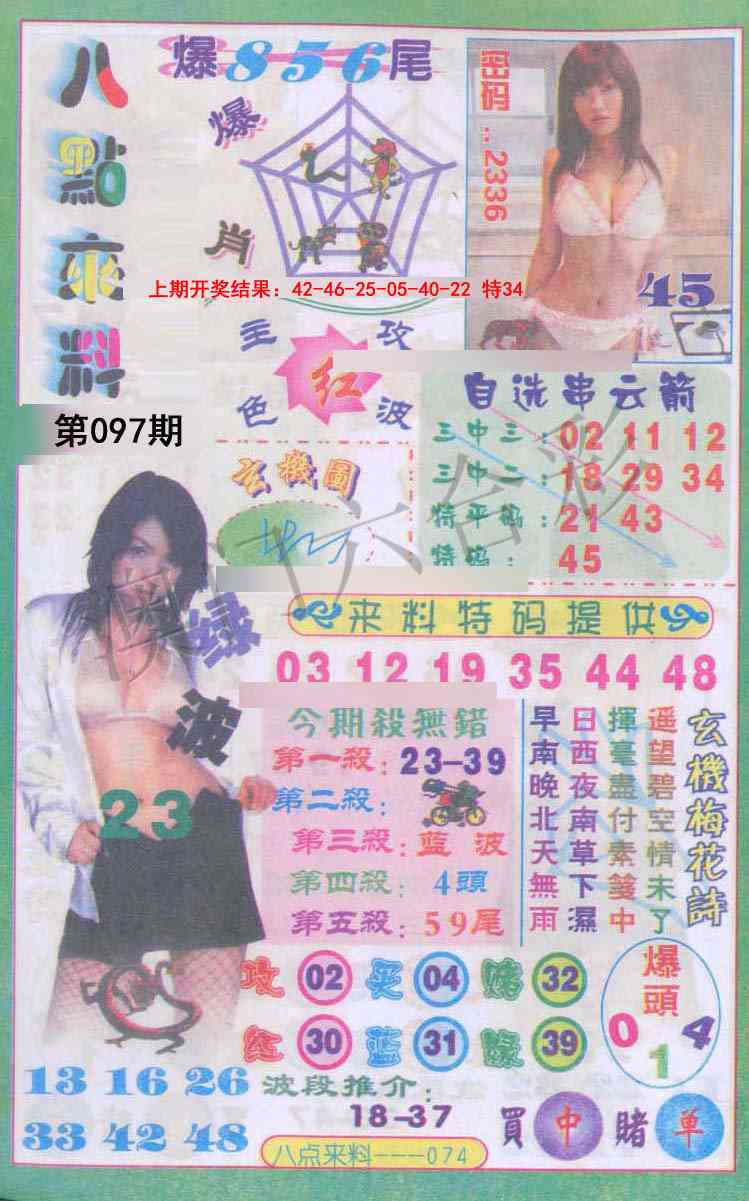 八點來料
爆856尾
爆肖
密码..2336
45
上期开奖结果：42-46-25-05-40-22 特34
主攻
红
色波
第097期
自选串云箭
三中三：02 11 12
三中二：18 29 34
特平码：21 43
特码：45
玄機圖
六合彩
绿波
23
来料特码提供
03 12 19 35 44 48
今期殺無錯
第一殺：23-39
第二殺：
第三殺：藍波
第四殺：4頭
第五殺：59尾
玄機梅花詩
遥望碧空情未了
揮毫盡付素箋中
日西夜南草下濕
早南晚北天無雨
攻 02 买 04 赌 32
红 30 蓝 31 绿 39
爆頭
0 1 4
13 16 26
33 42 48
波段推介：
18-37
買中賭单
八点来料---074